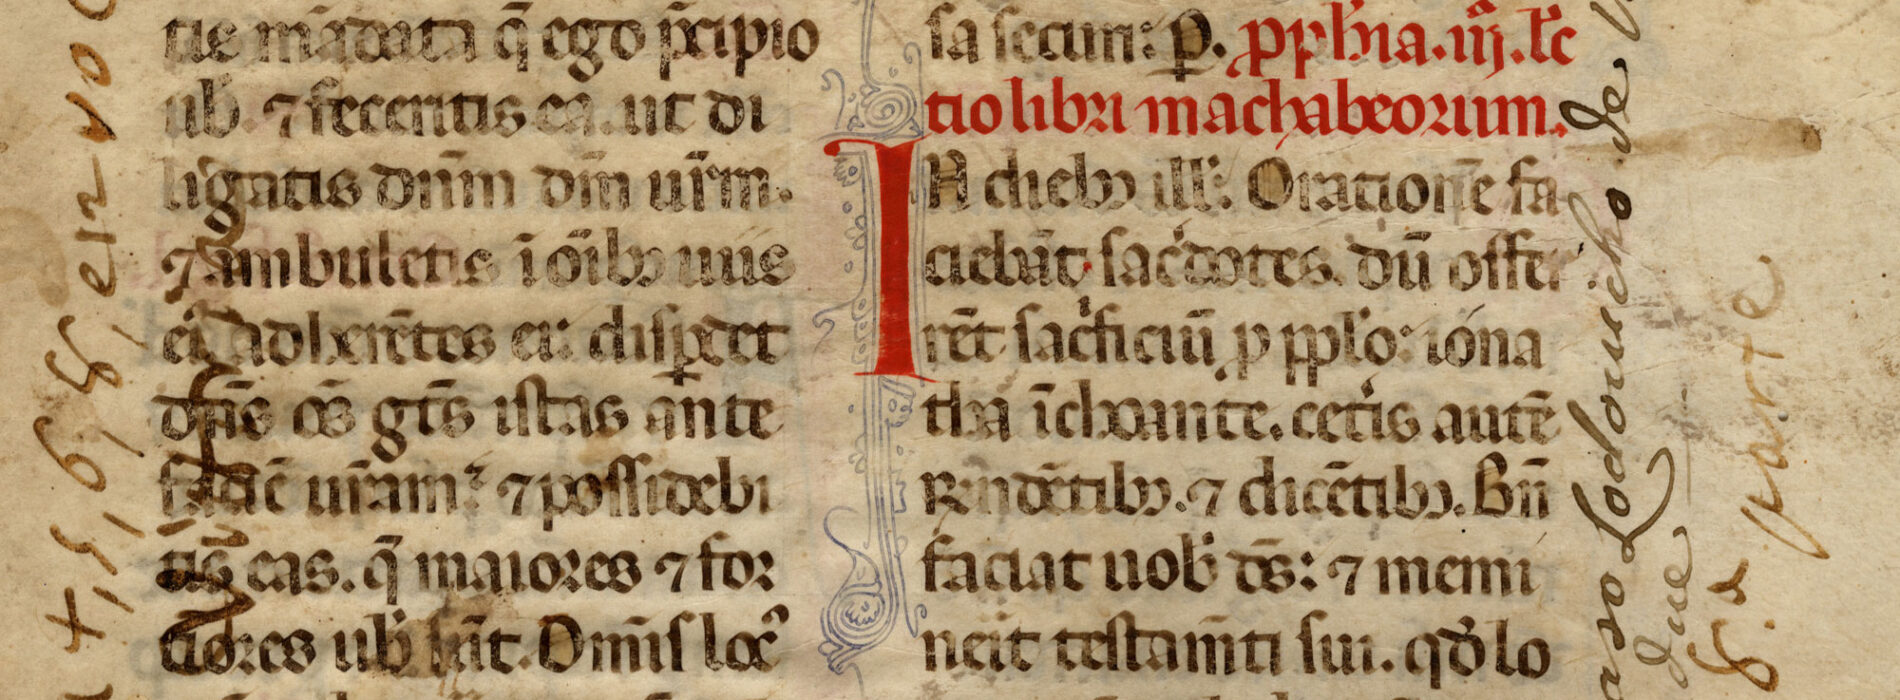 tis mādata q̄ ego p̄cipio
ub̄. ⁊ feceritis ea. ut di
ligatis dn̄m dm̄ ur̄m.
⁊ ambuletis ī oīb; uiis
ei᷑ adherētes ei: disꝑdet
dn̄s om̄s gēs istas ante
faciē ur̄am: ⁊ possidebi
tis eas. q̄ maiores ⁊ for
tiores ub̄ sūt. Om̄is loc᷒
sa secun: P. ꝓph̄ia. iij. lc̄
tio libri machabeorum.
IN dieb; ill̄: Orationē fa
ciebāt sac̄dotes. dū offer
rēt sac̄ficiū ꝓ pplo: iona
tha īchoante. cet̄is autē
Rn̄dētib;. ⁊ dicētib;. Bn̄
faciat uob̄ ds̄: ⁊ memi
nerit testam̄ti sui. qd̄ lo
Lodouicho de
due
parte